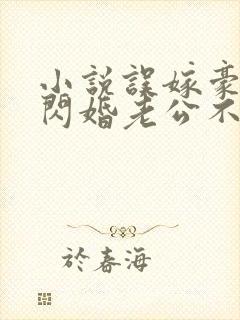 小説誤嫁豪
閃婚老公不
於春海